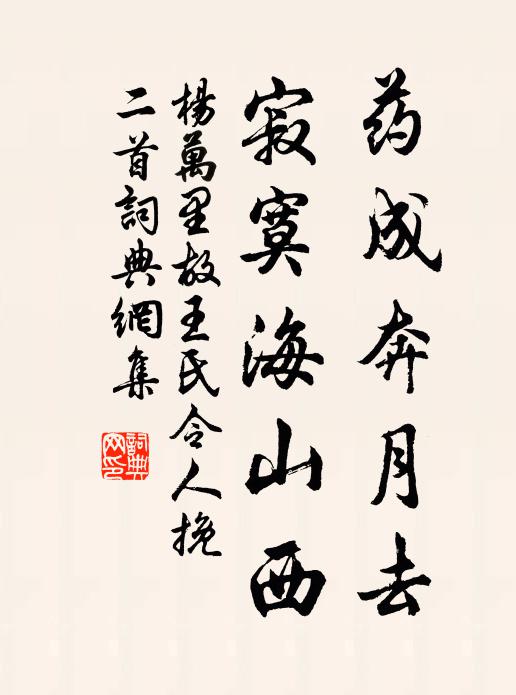 药成奔月去
寂寞海山西
楊萬里故王氏令人挽
二首詞典網集
詞典网印